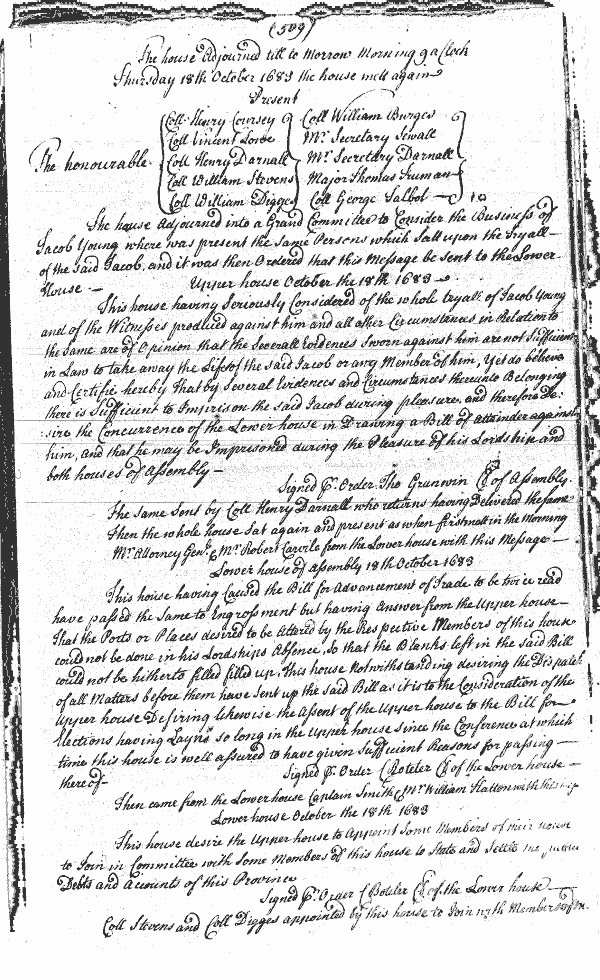 (509)
The house Adjourned till to Morrow Morning 9 a Clock
Thursday 18th October 1683 the house mett again
Present
Coll Henry Coursey Coll William Burges
Coll Vincent Lowe Mr. Secretary Sewall
The honourable Coll Henry Darnall Mr. Secretary Darnall
Coll William Stevens Major Thomas Truman
Coll William Digges Coll George Talbot
The house Adjourned into a Grand Committee to Consider the Business of
Jacob Young where was present the same Persons which satt upon the Tryall
of the said Jacob, and it was then Ordered that this Message be sent to the Lower
House.
Upper house October the 18th 1683
This house having seriously Considered of the whole tryall of Jacob Young
and of the Witnesses produced against him and all other Circumstances in Relation to
the same are of Opinion that the severall Evidences sworn against him are not sufficient
in Law to take away the Life of the said Jacob or any Member of him, yet do believe
and Certifie hereby that by several Evidences and Circumstances thereunto Belonging
there is sufficient to Imprison the said Jacob during pleasure, and therefore De:
sire the Concurrence of the Lower house in Drawing a Bill of attainder against
him, and that he may be Imprisoned during the Pleasure of his Lordship and
both houses of Assembly
Signed Pr. Order Tho Grunwin Cl of Assembly.
The same sent by Coll Henry Darnall who returns having Delivered the same
Then the whole house sat again and present as when first mett in the Morning
Mr. Attorney Genl. & Mr. Robert Carvile from the Lower house with this Message
Lower house of assembly 18th October 1683
This house having Caused the Bill for Advancement of Trade to be twice read
have passed the Same to Engrossment but having Answer from the Upper house
That the Ports or Places desired to be Altered by the Respective Members of this house
could not be done in his Lordships Absence, so that the Blanks left in the said Bill
could not be hitherto filled filled up, this house notwithstanding desiring the Dispatch
of all Matters before them have sent up the said Bill as it is to the Consideration of the
Upper house Desiring likewise the Assent of the Upper house to the Bill for
Elections having Layn so long in the Upper house since the Conference at which
time this house is well assured to have given sufficient Reasons for passing
thereof
Signed Pr. Order C Boteler Cl of the Lower house
Then came from the Lower house Captain Smith & Mr. William Hatton with this
Lower house October the 18th 1683
This house desire the Upper house to Appoint Some Members of their house
to Join in Committee with Some Members of this house to State and Settle the publick
Debts and Accounts of this Province
Signed Pr. Order C Boteler Cl of the Lower house
Coll Stevens and Coll Digges appointed by this house to Join with Members of the